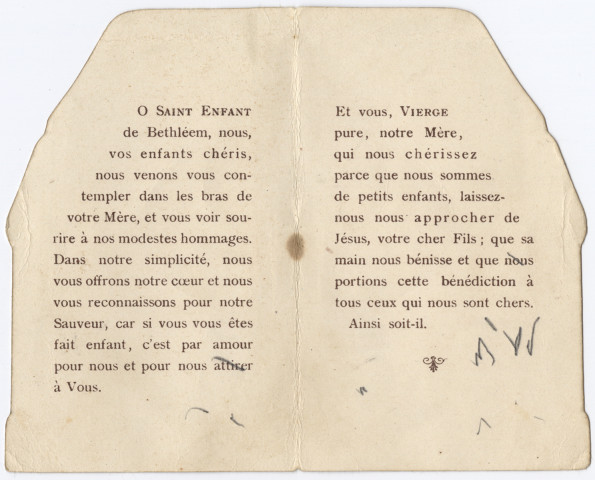 O SAINT ENFANT
de Bethléem, nous,
vos enfants chéris,
nous venons vous con-
templer dans les bras de
votre Mère, et vous voir sou-
rire à nos modestes hommages.
Dans notre simplicité, nous
vous offrons notre cœur et nous
vous reconnaissons pour notre
Sauveur, car si vous vous êtes
fait enfant, c'est par amour
pour nous et pour nous attirer
à Vous.
Et vous, VIERGE
pure, notre Mère,
qui nous chérissez
parce que nous sommes
de petits enfants, laissez-
nous nous approcher de
Jésus, votre cher Fils ; que sa
main nous bénisse et que nous
portions cette bénédiction à
tous ceux qui nous sont chers.
Ainsi soit-il.